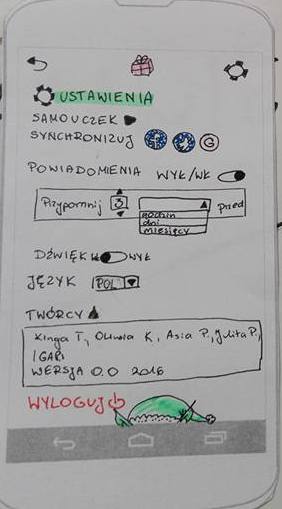 USTAWIENIA
SAMOUCZEK
SYNCHRONIZUJ G
POWIADOMIENIA WYŁ/WŁ
Przypomnij 3 przed
godzin
dni
miesięcy
DŹWIĘK WŁ WYŁ
JĘZYK POL
TWÓRCY
Kinga T, Oliwia K, Asia P, Julita P,
IGARI
WERSJA 0.0 2016
WYLOGUJ